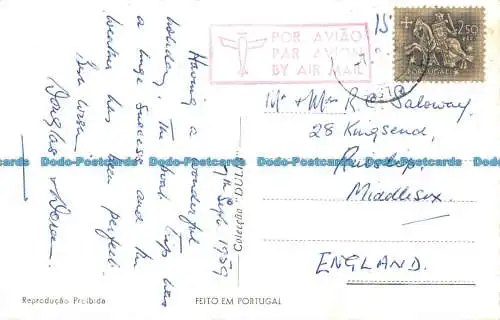 7th Sept. 1959
Having a wonderful
holiday. The boat trip was
a huge success and the
weather has been perfect.
Best wishes
Douglas & Doreen.
Colecção "DÚLIA"
Reprodução Proibida
FEITO EM PORTUGAL
POR AVIÃO
PAR AVION
BY AIR MAIL
2$50
PORTUGAL
Mr + Mrs R.C. Saloway.
28 Kingsend,
Ruislip,
Middlesex.
ENGLAND.
Dodo-Postcards Dodo-Postcards Dodo-Postcards